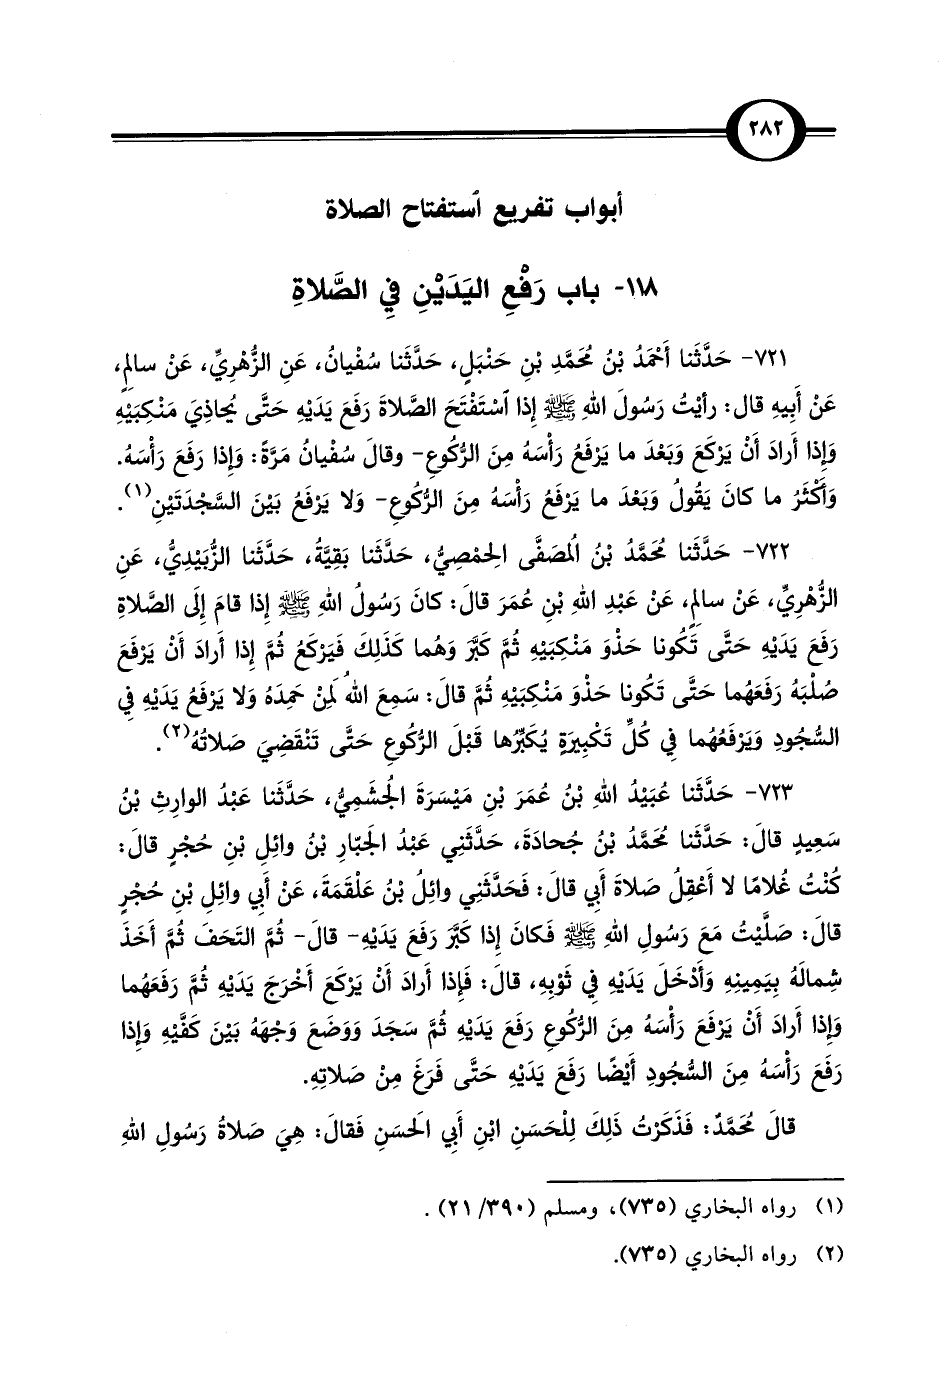 ٢٨٢
أبواب تفريع ٱستفتاح الصلاة
١١٨- باب رَفْعِ اليَدَيْنِ فِي الصَّلاةِ
٧٢١- حَدَّثَنا أَحْمَدُ بْنُ مُحَمَّدِ بْنِ حَنْبَلٍ، حَدَّثَنا سُفْيانُ، عَنِ الزُّهْرِيِّ، عَنْ سالِمٍ،
عَنْ أَبِيهِ قالَ: رأيْتُ رَسُولَ اللهِ ﷺ إِذا ٱسْتَفْتَحَ الصَّلاةَ رَفَعَ يَدَيْهِ حَتَّى يُحاذِيَ مَنْكِبَيْهِ
وَإِذا أَرادَ أَنْ يَرْكَعَ وَبَعْدَ ما يَرْفَعُ رَأْسَهُ مِنَ الرُّكُوعِ- وقالَ سُفْيانُ مَرَّةً: وَإِذا رَفَعَ رَأْسَهُ.
وَأَكْثَرُ ما كانَ يَقُولُ وَبَعْدَ ما يَرْفَعُ رَأْسَهُ مِنَ الرُّكُوعِ- وَلا يَرْفَعُ بَيْنَ السَّجْدَتَيْنِ(١).
٧٢٢- حَدَّثَنا مُحَمَّدُ بْنُ المُصَفَّى الحِمْصِيُّ، حَدَّثَنا بَقِيَّةُ، حَدَّثَنا الزُّبَيْدِيُّ، عَنِ
الزُّهْرِيِّ، عَنْ سالِمٍ، عَنْ عَبْدِ اللهِ بْنِ عُمَرَ قالَ: كانَ رَسُولُ اللهِ ﷺ إِذا قامَ إِلَى الصَّلاةِ
رَفَعَ يَدَيْهِ حَتَّى تَكُونا حَذْوَ مَنْكِبَيْهِ ثُمَّ كَبَّرَ وَهُما كَذَلِكَ فَيَرْكَعُ ثُمَّ إِذا أَرادَ أَنْ يَرْفَعَ
صُلْبَهُ رَفَعَهُما حَتَّى تَكُونا حَذْوَ مَنْكِبَيْهِ ثُمَّ قالَ: سَمِعَ اللهُ لِمَنْ حَمِدَهُ وَلا يَرْفَعُ يَدَيْهِ فِي
السُّجُودِ وَيَرْفَعُهُما فِي كُلِّ تَكْبِيرَةٍ يُكَبِّرُها قَبْلَ الرُّكُوعِ حَتَّى تَنْقَضِيَ صَلاتُهُ(٢).
٧٢٣- حَدَّثَنا عُبَيْدُ اللهِ بْنُ عُمَرَ بْنِ مَيْسَرَةَ الجُشَمِيُّ، حَدَّثَنا عَبْدُ الوارِثِ بْنُ
سَعِيدٍ قالَ: حَدَّثَنا مُحَمَّدُ بْنُ جُحادَةَ، حَدَّثَنِي عَبْدُ الجَبّارِ بْنُ وائِلِ بْنِ حُجْرٍ قالَ:
كُنْتُ غُلامًا لا أَعْقِلُ صَلاةَ أَبِي قالَ: فَحَدَّثَنِي وائِلُ بْنُ عَلْقَمَةَ، عَنْ أَبِي وائِلِ بْنِ حُجْرٍ
قالَ: صَلَّيْتُ مَعَ رَسُولِ اللهِ ﷺ فَكانَ إِذا كَبَّرَ رَفَعَ يَدَيْهِ- قالَ- ثُمَّ التَحَفَ ثُمَّ أَخَذَ
شِمالَهُ بِيَمِينِهِ وَأَدْخَلَ يَدَيْهِ فِي ثَوْبِهِ، قالَ: فَإِذا أَرادَ أَنْ يَرْكَعَ أَخْرَجَ يَدَيْهِ ثُمَّ رَفَعَهُما
وَإِذا أَرادَ أَنْ يَرْفَعَ رَأْسَهُ مِنَ الرُّكُوعِ رَفَعَ يَدَيْهِ ثُمَّ سَجَدَ وَوَضَعَ وَجْهَهُ بَيْنَ كَفَّيْهِ وَإِذا
رَفَعَ رَأْسَهُ مِنَ السُّجُودِ أَيْضًا رَفَعَ يَدَيْهِ حَتَّى فَرَغَ مِنْ صَلاتِهِ.
قالَ مُحَمَّدٌ: فَذَكَرْتُ ذَلِكَ لِلْحَسَنِ ابْنِ أَبِي الحَسَنِ فَقالَ: هِيَ صَلاةُ رَسُولِ اللهِ
(١) رواه البخاري (٧٣٥)، ومسلم (٣٩٠/ ٢١) .
(٢) رواه البخاري (٧٣٥).